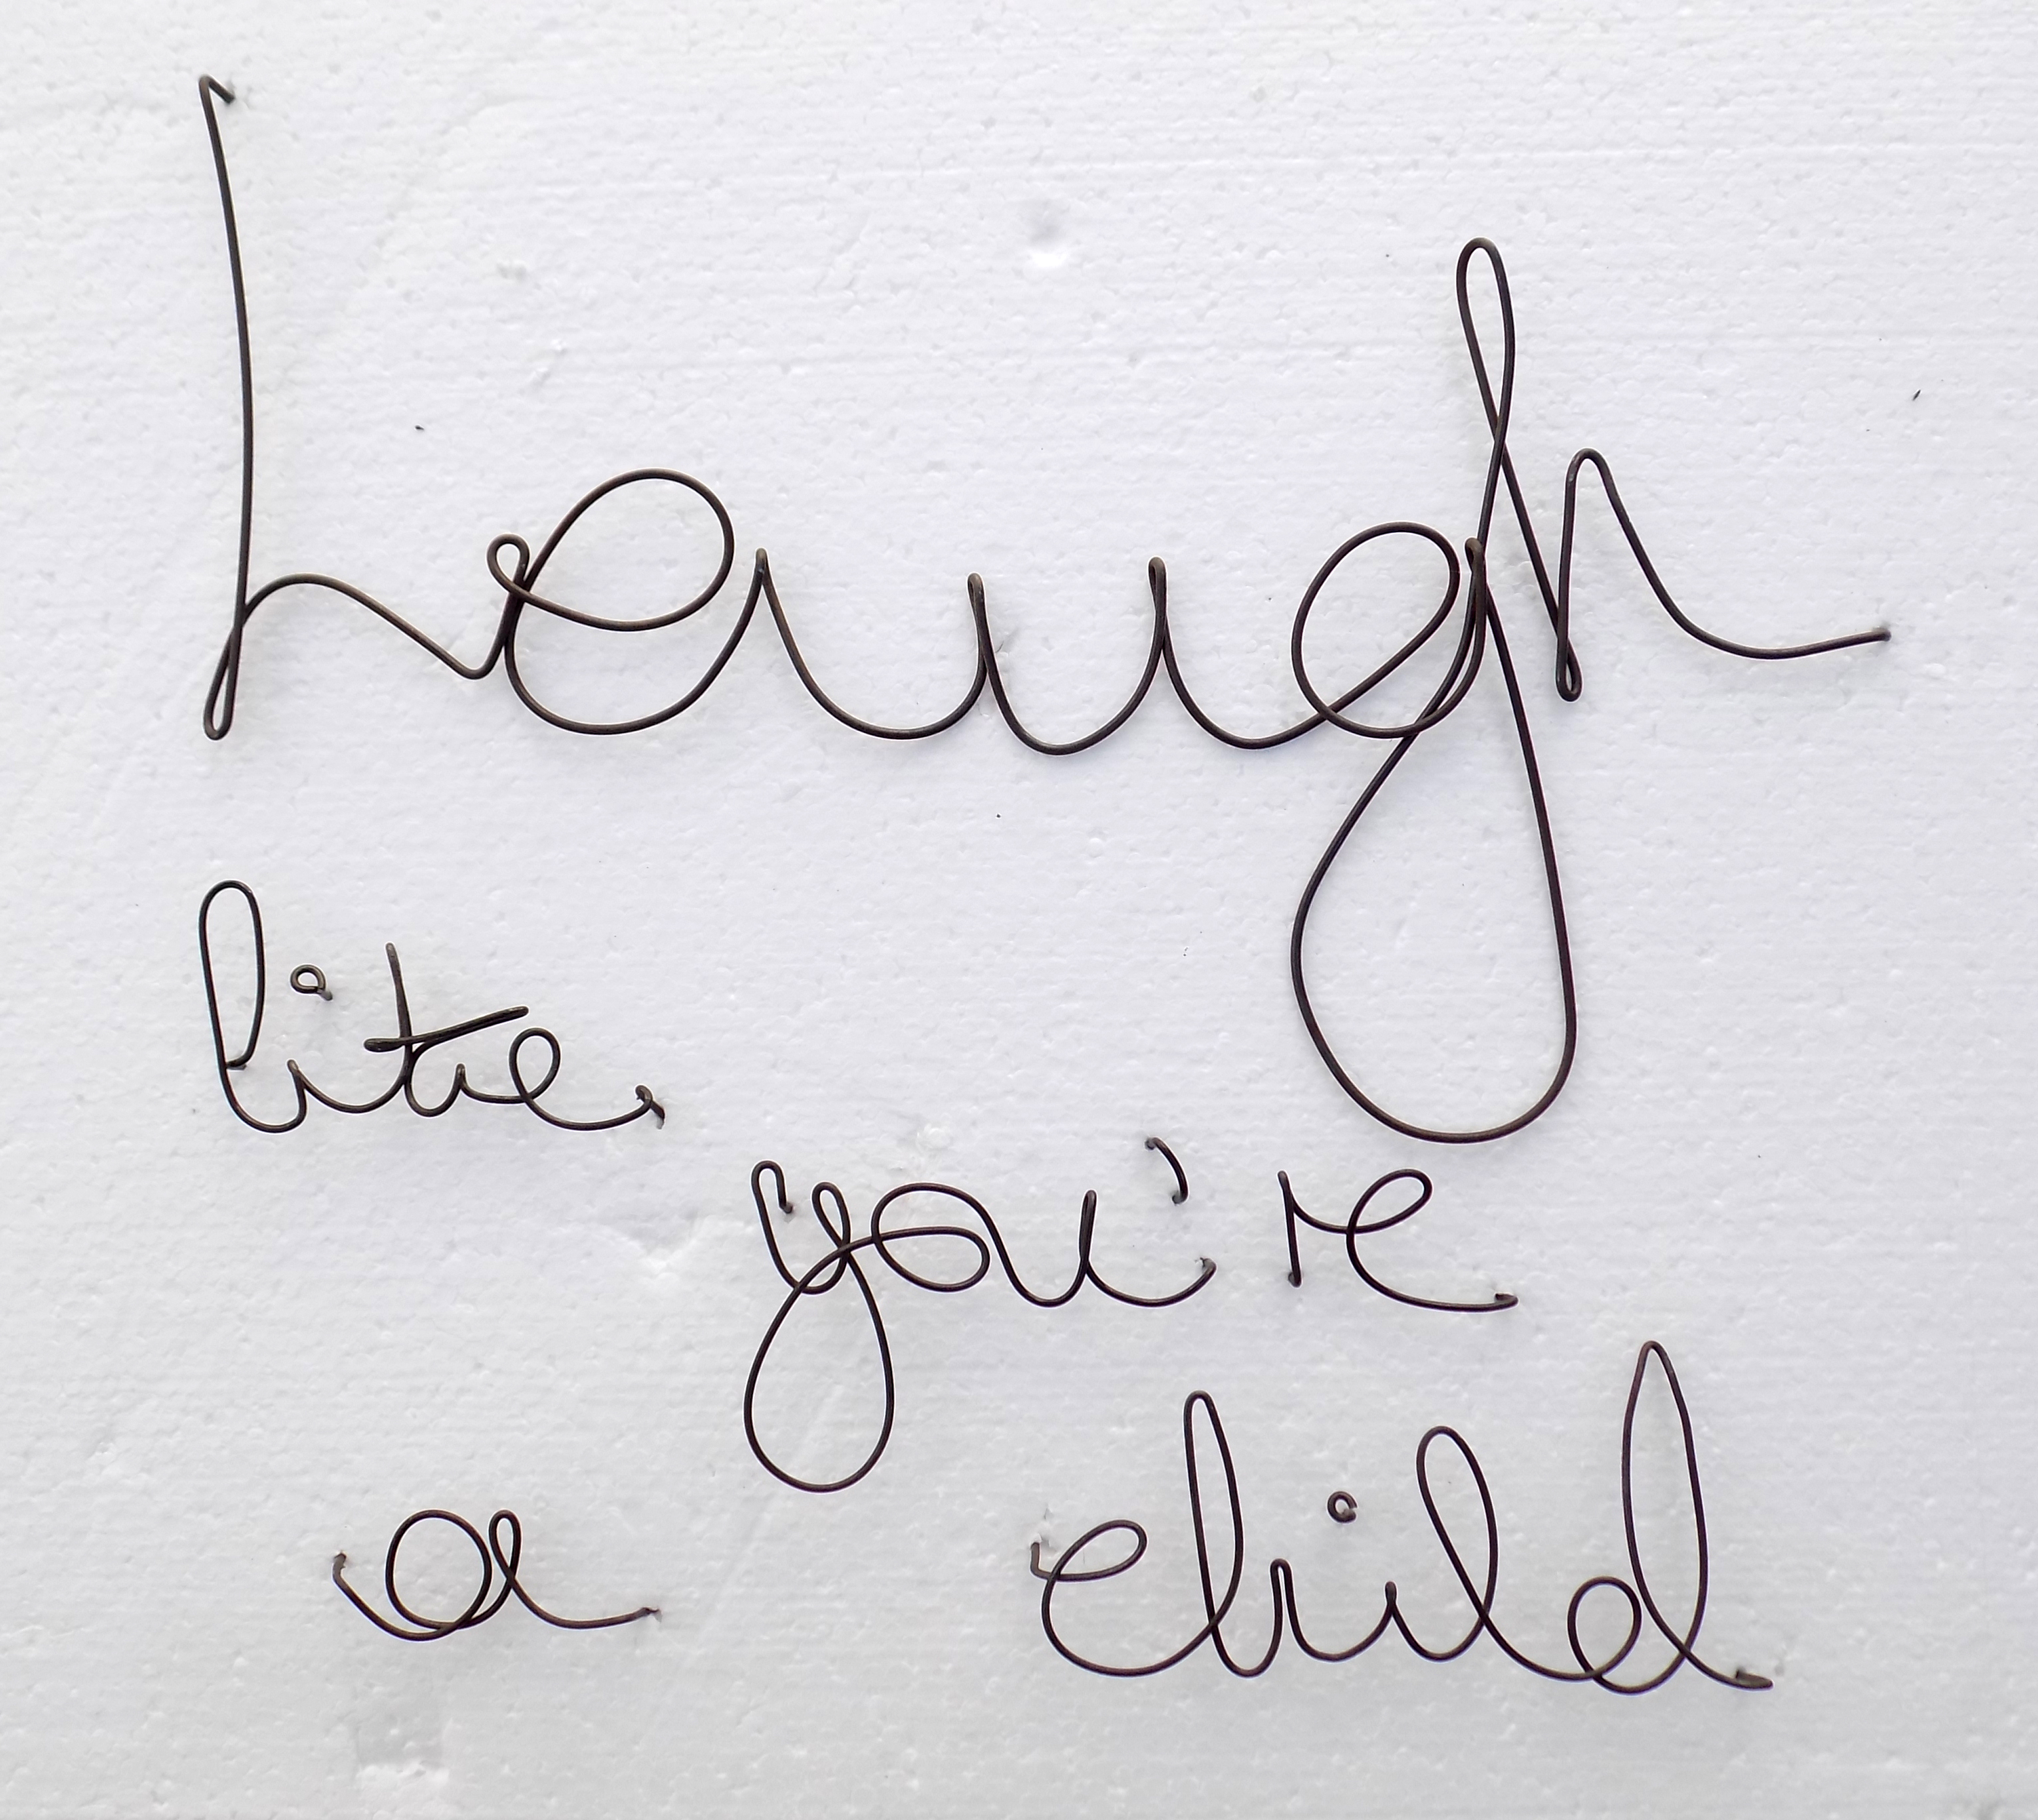 Laugh
like
you're
a child